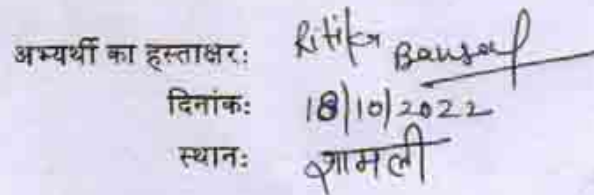 अभ्यर्थी का हस्ताक्षर: Ritika Bansal
दिनांक: 18/10/2022
स्थान: शामली